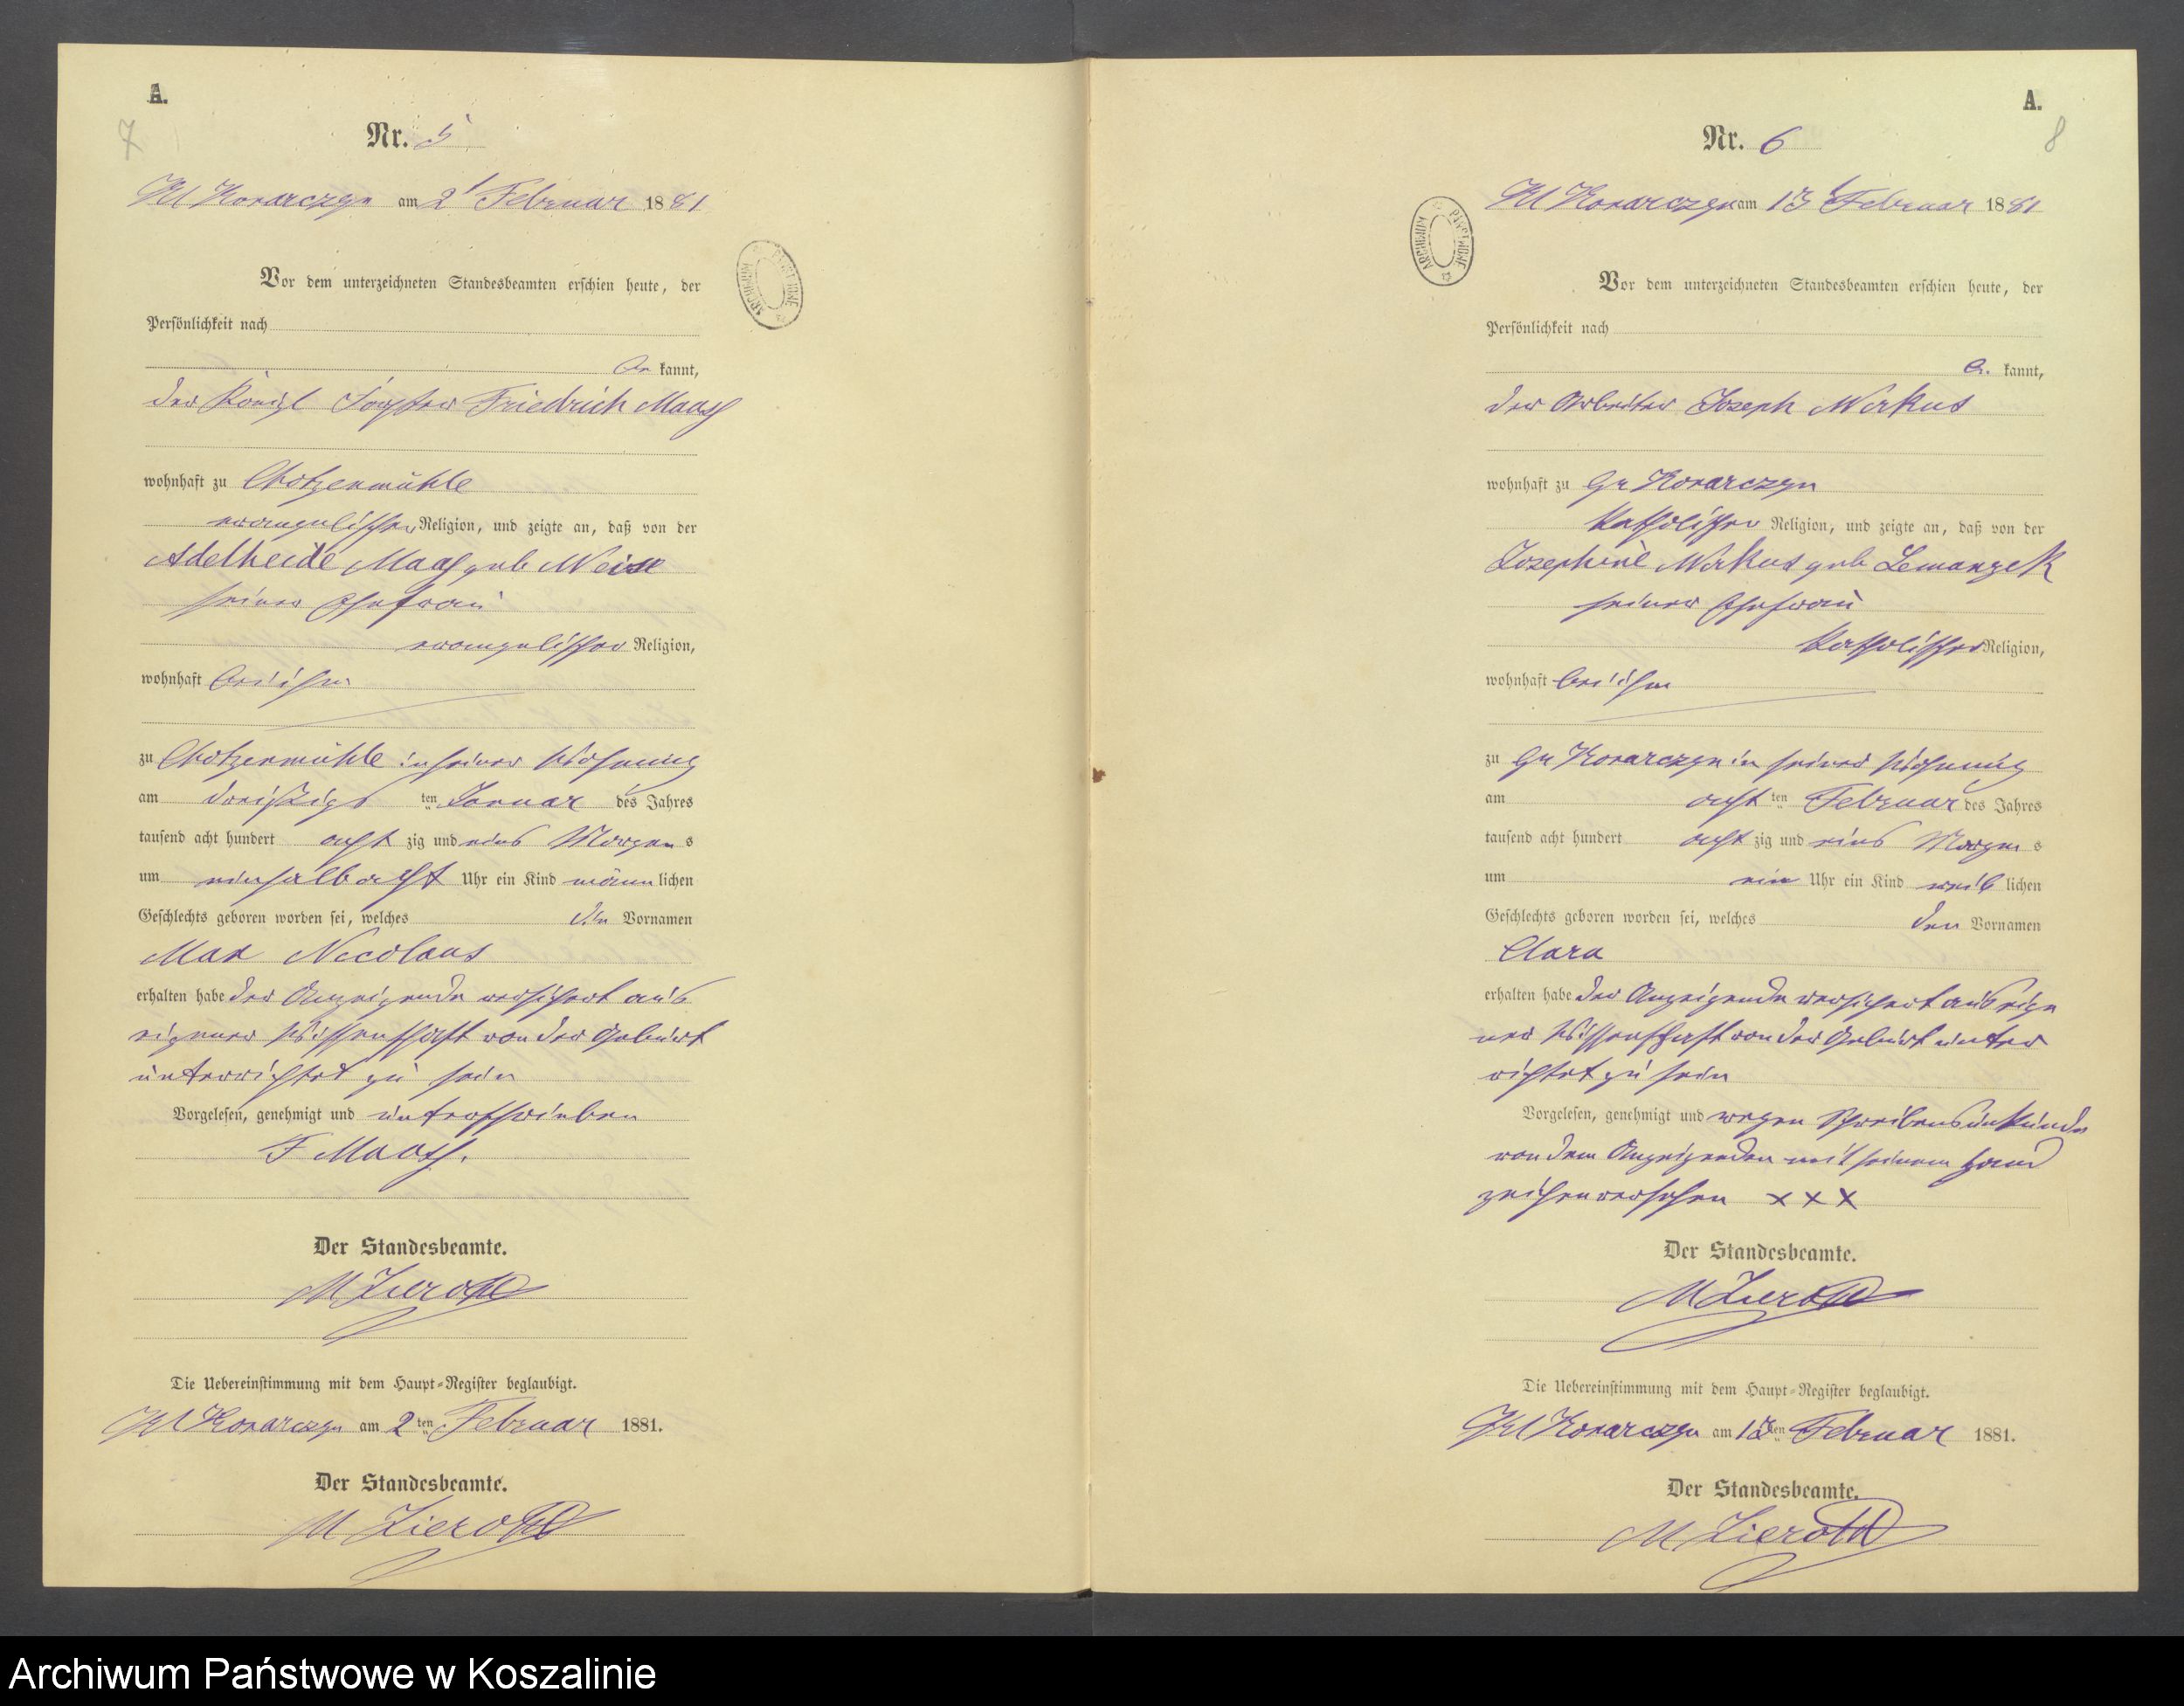 A.
7
Nr. 5
Kl Konarczyn am 2t Februar 1881
Vor dem unterzeichneten Standesbeamten erschien heute, der
Persönlichkeit nach
be kannt,
der Königl Förster Friedrich Maass
wohnhaft zu Chotzenmühle
evangelischer Religion, und zeigte an, daß von der
Adelheide Maass geb Weise
seiner Ehefrau
evangelischer Religion,
wohnhaft bei ihm
zu Chotzenmühle in seiner Wohnung
am dreißigs ten Januar des Jahres
tausend acht hundert acht zig und eins Morgen s
um einhalb acht Uhr ein Kind männ lichen
Geschlechts geboren worden sei, welches die Vornamen
Max Nicolaus
erhalten habe der Anzeigende versichert aus
eigener Wissenschaft von der Geburt
unterrichtet zu sein
Vorgelesen, genehmigt und unterschrieben
F Maass.
Der Standesbeamte.
M Zieroth
Die Uebereinstimmung mit dem Haupt-Register beglaubigt.
Kl Konarczyn am 2 ten Februar 1881.
Der Standesbeamte.
M Zieroth
ARCHIWUM PAŃSTWOWE
A.
8
Nr. 6
Kl Konarczyn am 13t Februar 1881
ARCHIWUM PAŃSTWOWE
Vor dem unterzeichneten Standesbeamten erschien heute, der
Persönlichkeit nach
be kannt,
der Arbeiter Joseph
wohnhaft zu Gr Konarczyn
katholischer Religion, und zeigte an, daß von der
Josephine geb
seiner Ehefrau
katholischer Religion,
wohnhaft bei ihm
zu Gr Konarczyn in seiner Wohnung
am acht ten Februar des Jahres
tausend acht hundert acht zig und eins Morgen s
um ein Uhr ein Kind weib lichen
Geschlechts geboren worden sei, welches den Vornamen
Clara
erhalten habe der Anzeigende versichert aus eige
ner Wissenschaft von der Geburt unter
richtet zu sein
Vorgelesen, genehmigt und wegen Schreibensunkunde
von dem Anzeigenden mit seinem Hand
zeichen versehen x x x
Der Standesbeamte.
M Zieroth
Die Uebereinstimmung mit dem Haupt-Register beglaubigt.
Kl Konarczyn am 13 ten Februar 1881.
Der Standesbeamte.
M Zieroth
Archiwum Państwowe w Koszalinie